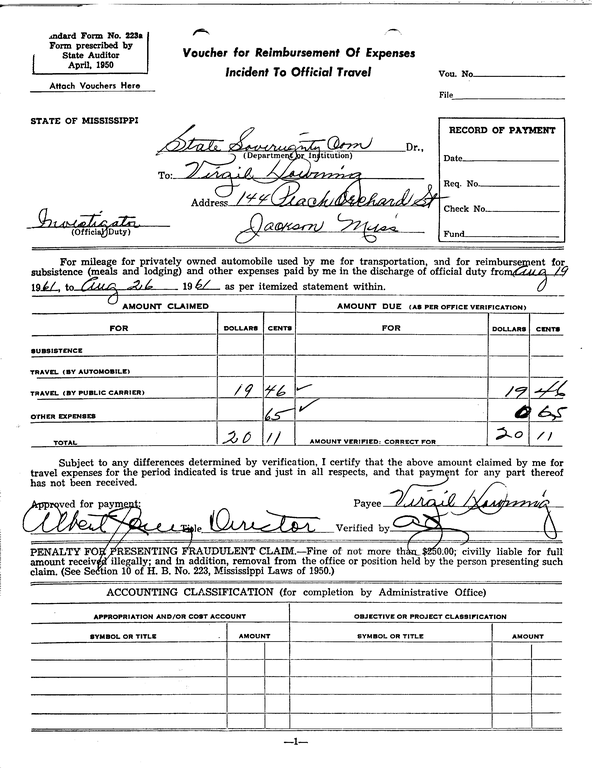 ndard Form No. 223a
Form prescribed by
State Auditor
April, 1950
Attach Vouchers Here
Voucher for Reimbursement Of Expenses
Incident To Official Travel
Vou. No.
File
STATE OF MISSISSIPPI
State Sovereignty Com Dr.,
(Department or Institution)
To: Virgil Downing
Address 144 Peach Orchard St
Jackson Miss
Investigator
(Official Duty)
RECORD OF PAYMENT
Date
Req. No.
Check No.
Fund
For mileage for privately owned automobile used by me for transportation, and for reimbursement for
subsistence (meals and lodging) and other expenses paid by me in the discharge of official duty from Aug 19
1961, to Aug 26 1961 as per itemized statement within.
AMOUNT CLAIMED AMOUNT DUE (AS PER OFFICE VERIFICATION)
FOR DOLLARS CENTS FOR DOLLARS CENTS
SUBSISTENCE
TRAVEL (BY AUTOMOBILE)
TRAVEL (BY PUBLIC CARRIER) 19 46 ✓ 19 46
OTHER EXPENSES 65 ✓ 0 65
TOTAL 20 11 AMOUNT VERIFIED: CORRECT FOR 20 11
Subject to any differences determined by verification, I certify that the above amount claimed by me for
travel expenses for the period indicated is true and just in all respects, and that payment for any part thereof
has not been received.
Approved for payment: Payee Virgil Downing
Albert Jones Title Director Verified by
PENALTY FOR PRESENTING FRAUDULENT CLAIM.—Fine of not more than $250.00; civilly liable for full
amount received illegally; and in addition, removal from the office or position held by the person presenting such
claim. (See Section 10 of H. B. No. 223, Mississippi Laws of 1950.)
ACCOUNTING CLASSIFICATION (for completion by Administrative Office)
APPROPRIATION AND/OR COST ACCOUNT OBJECTIVE OR PROJECT CLASSIFICATION
SYMBOL OR TITLE AMOUNT SYMBOL OR TITLE AMOUNT
—1—